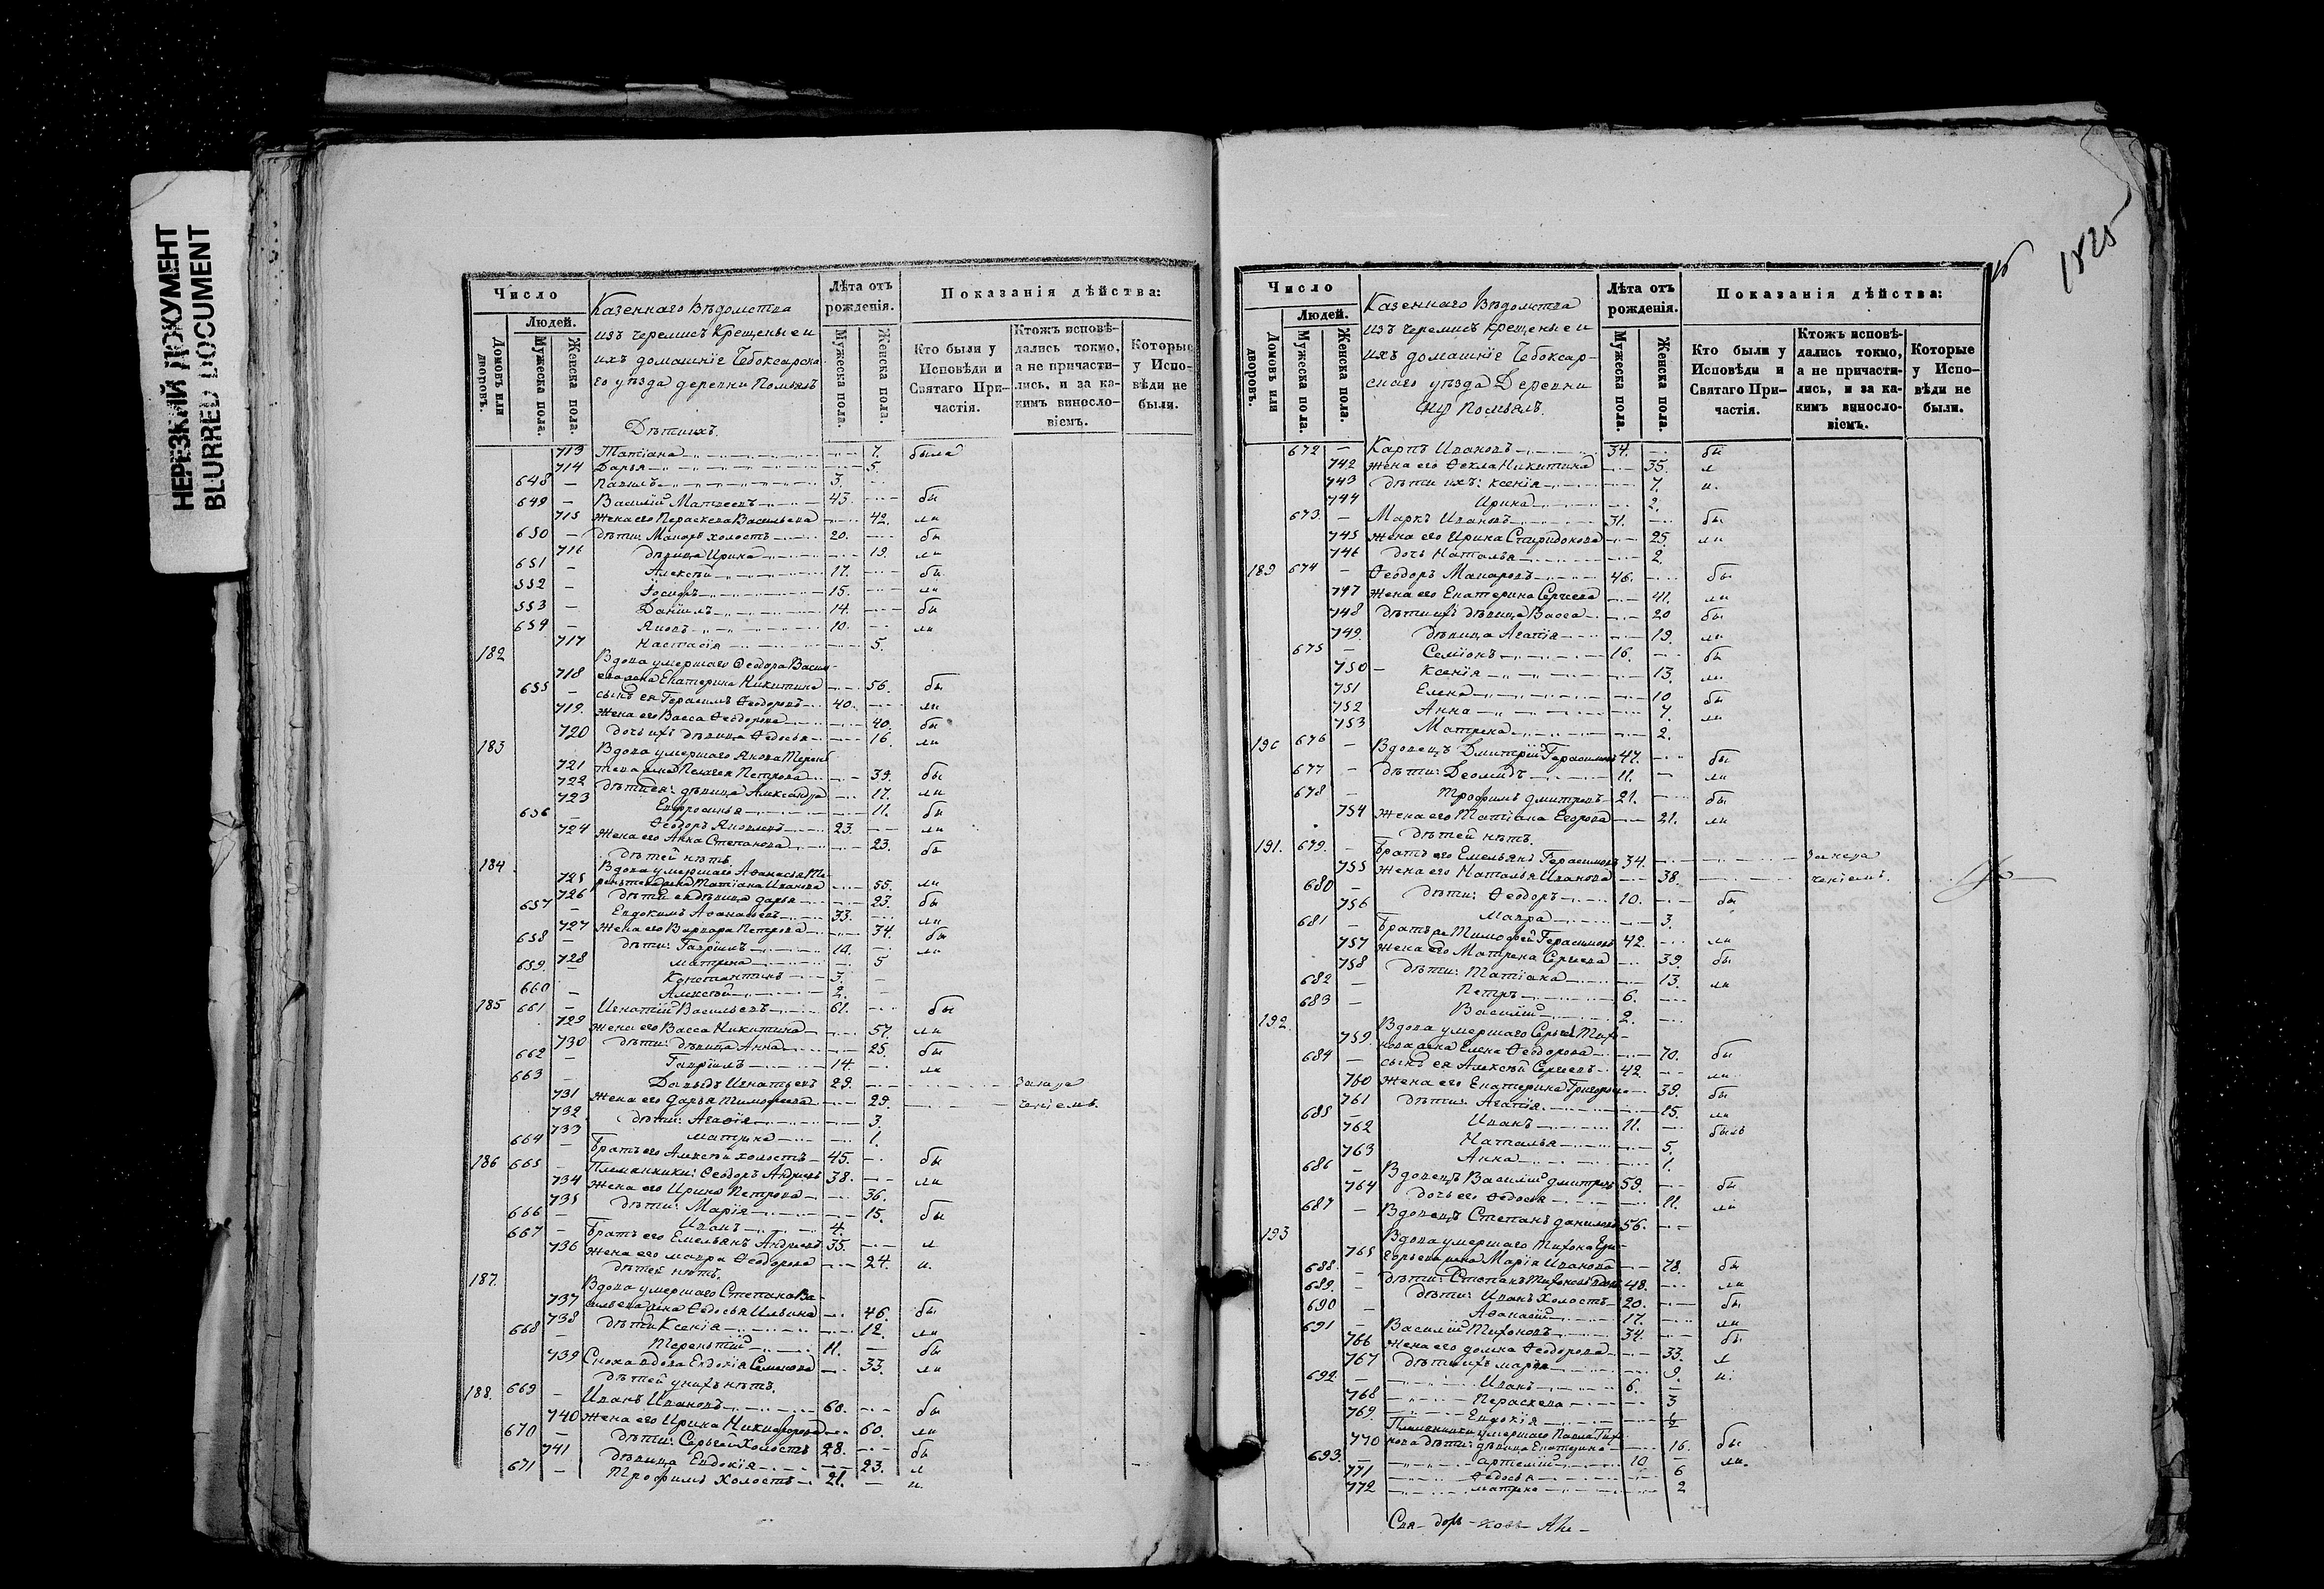 НЕРЕЗКИЙ ДОКУМЕНТ
BLURRED DOCUMENT
Число
Людей.
Домовъ или дворовъ.
Мужеска пола.
Женска пола.
Казеннаго Вѣдомства
изъ черемисъ Крещеные и
ихъ домашніе Чебоксарска-
го уѣзда деревни Помьялъ
Дѣти ихъ.
Лѣта отъ рожденія.
Мужеска пола.
Женска пола.
Показанія дѣйства:
Кто были у Исповѣди и Святаго При-частія.
Ктожъ исповѣ-дались токмо, а не причасти-лись, и за ка-кимъ виносло-віемъ.
Которые у Испо-вѣди не были.
713 Татіана 7. была
714 Дарья 5.
648 – Павилъ 3.
649 – Василій Матвеевъ 43. бы
715 жена его Параскева Васильева 42. ли
650 – дѣти: Макаръ холостъ 20. бы
716 дѣвица Ирина 19. ли
651 – Алексѣй 17. бы
552 – Іосифъ 15. ли
553 – Даніилъ 14. бы
659 – Яковъ 10. ли
717 Настасія 5.
182 Вдова умершаго Ѳеодора Васи-
718 жена Екатерина Никитина 56. бы
655 – сынъ ея Герасимъ Ѳеодоровъ 40. ли
719. жена его Васса Ѳеодорова 40. бы
720 дочь ихъ дѣвица Ѳедосья 16. ли
183 Вдова умершаго Якова Терень-
721 тева жена Пелагея Петрова 39. бы
722 дѣти ея: дѣвица Александра 17. ли
723 Евфросинья 11. бы
656 – Ѳеодоръ Яковлевъ 23. ли
724 жена его Анна Степанова 23. бы
дѣтей нѣтъ.
184 Вдова умершаго Аѳанасья Те-
725 рентева жена Татіана Иванова 55. ли
726 дѣти ея дѣвица дарья 23. бы
657 – Евдокимъ Аѳанасьевъ 33. ли
727 жена его Варвара Петрова 34. бы
658 – дѣти: Гавріилъ 10. ли
728 матрена 5
659. – Константинъ 3.
660 – Алексѣй 2.
185 661 – Игнатій Васильевъ 61. бы
729 жена его Васса Никитина 57. ли
730 дѣти: дѣвица Анна 25. бы
662 – Гавріилъ 14. ли
663 – Давыдъ Игнатьевъ 29. за нера
731 жена его дарья Тимофеева 29. ченіемъ.
732 дѣти: Агаѳія 3.
733 матрена 1.
664 – Братъ его Алексѣй холостъ 45. бы
186 665 – Племянники: Ѳеодоръ Андреевъ 38. ли
734 жена его Ирина Петрова 36.
735 дѣти: Марія 15. бы
666 – Иванъ 4.
667 – Братъ его Емельянъ Андреевъ 35. л
736 жена его мавра Ѳеодорова 24. и.
дѣтей нѣтъ.
187. Вдова умершаго Степана Ва-
737 сильева жена Ѳедосья Ильина 46. бы
738 дѣти Ксенія 12. ли
668 – Терентій 11. бы
739 Сноха вдова Евдокія Семенова 33. ли
дѣтей у нихъ нѣтъ.
188. 669 – Иванъ Ивановъ 60. бы
740 жена его Ирина Никифорова 60. ли
670 – дѣти: Сергѣй холостъ 28. бы
741 дѣвица Евдокія 23. л
671 – Трофимъ холостъ 21. и.
1825
Число
Людей.
Домовъ или дворовъ.
Мужеска пола.
Женска пола.
Казеннаго Вѣдомства
изъ черемисъ крещеные и
ихъ домашніе Чебоксар-
скаго уѣзда Деревни
Помьялъ.
Лѣта отъ рожденія.
Мужеска пола.
Женска пола.
Показанія дѣйства:
Кто были у Исповѣди и Святаго При-частія.
Ктожъ исповѣ-дались токмо, а не причасти-лись, и за ка-кимъ виносло-віемъ.
Которые у Испо-вѣди не были.
672 – Карпъ Ивановъ 34. бы
742 жена его Ѳекла Никитина 35. л
743 дѣти ихъ: ксенія 7. и.
744 Ирина 2.
673. – Маркъ Ивановъ 31. бы
745 жена его Ирина Спиридонова 25. ли
746 дочь Наталья 2.
189 674 – Ѳеодоръ Макаровъ 46. бы
747 жена его Екатерина Сергеева 41. ли
748 дѣти ихъ дѣвица Васса 20 бы
749. дѣвица Агапія 19. ли
675 – Семіонъ 16. бы
750 – Ксенія 13. ли
751 Елена 10 бы
752 Анна 7. ли
753 Матрена 2.
190 676 – Вдовецъ Дмитрій Герасимовъ 47. бы
677 – дѣти: Деомидъ 11. ли
678 – Трофимъ дмитревъ 21. бы
754 жена его Татіана Егорова 21. ли
дѣтей нѣтъ.
191. 679. – Братъ его Емельянъ Герасимовъ 34. за нера
755 жена его Наталья Иванова 38. ченіемъ.
680 – дѣти: Ѳеодоръ 10. бы
756 мавра 3.
681 – Братъ Тимофей Герасимовъ 42. ли
757 жена его Матрена Сергеева 39. бы
758 дѣти: Татіана 13. ли
682 – Петръ 6.
683 – Василій 2.
192. Вдова умершаго Сергея Тихо-
759. нова жена Елена Ѳеодорова 70. бы
684 – сынъ ея Алексѣй Сергеевъ 42 ли
760 жена его Екатерина Григорьева 39. бы
761 дѣти: Агапія 15. ли
685 – Иванъ 11. былъ
762 Наталья 5.
763 Анна 1.
686 – Вдовецъ Василій дмитревъ 59. бы
764 дочь его Ѳедосья 11. ли
687 – Вдовецъ Степанъ даниловъ 56.
193 Вдова умершаго Тихона Гри-
765 горьева жена Марія Иванова 78. бы
688. – дѣти: Степанъ Тихоновъ 48. ли
689. – дѣти: Иванъ холостъ 20. бы
690 – Аѳанасій 17. ли
691 – Василій Тихоновъ 34. бы
766 жена его домна Ѳеодорова 33. л
767 дѣти ихъ марья 9. и.
692 – Иванъ 6.
768 Параскева 3
769. Евдокія ½
Племянники умершаго Павла Тихо-
770 нова дѣти: дѣвица Екатерина 16. бы
693. – артемій 10 ли.
771 Ѳедосья 6
772 матрена 2